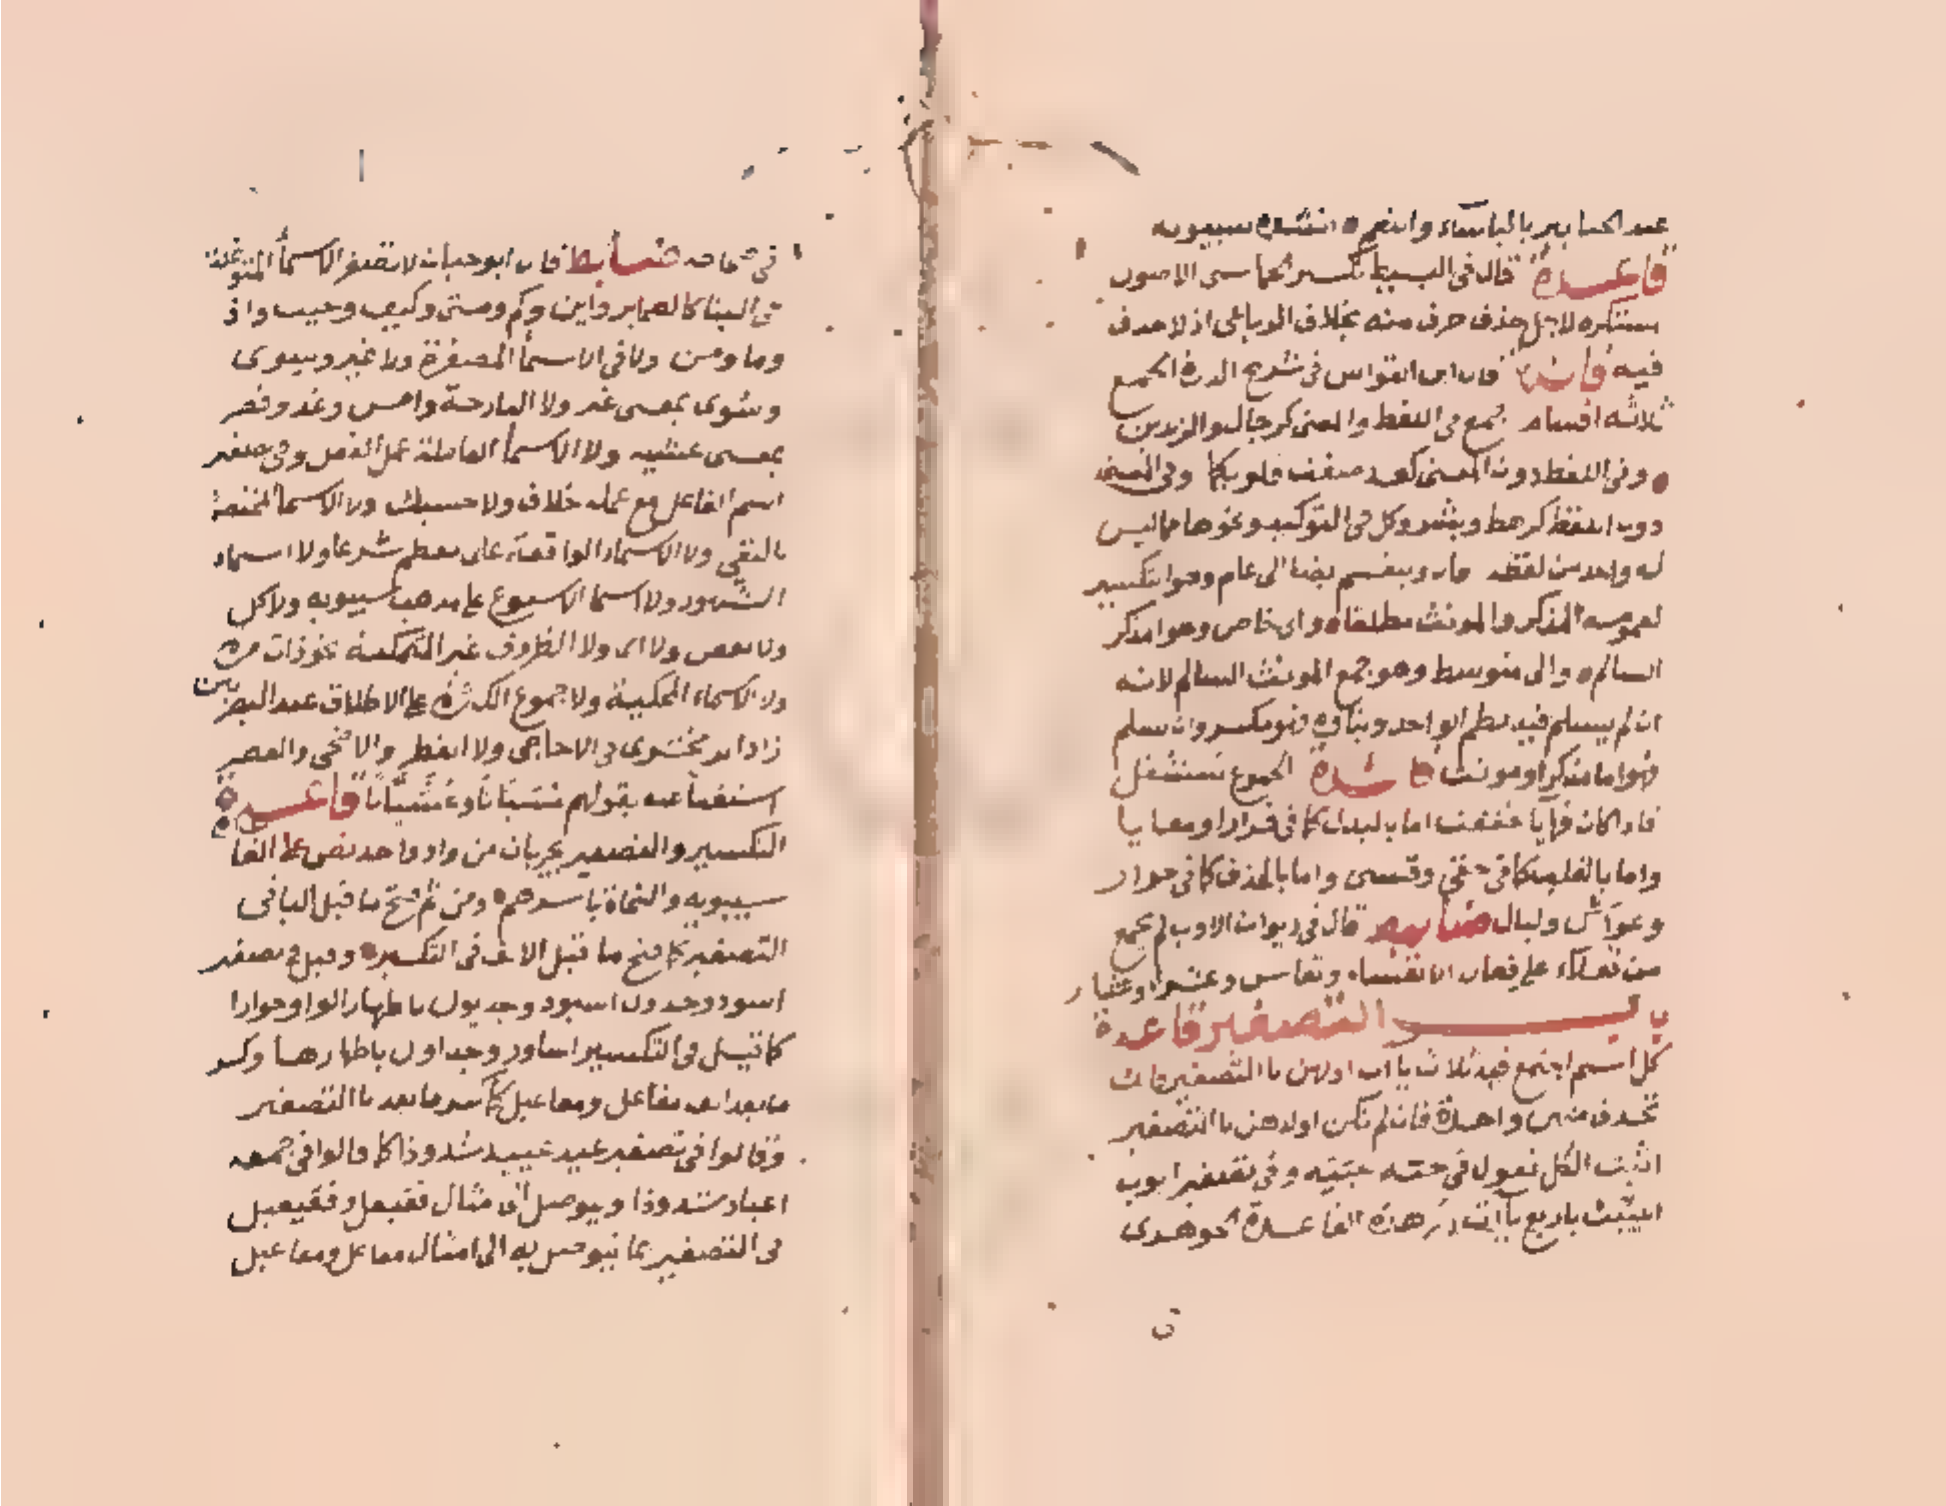 قاعدة قال في البسيط تكسير الخماسي الاصول
مستكره لاجل حذف حرف منه بخلاف الرباعي اذ لا حذف
فيه فائدة قال ابن القواس في شرح الدرة الجمع
ثلاثة اقسام جمع في اللفظ والمعنى كرجال والزيدين
وفي اللفظ دون المعنى صغت قلوبكما وفي المعنى
دون اللفظ كرهط وبشر وكل في التوكيد ونحوها مما ليس
له واحد من لفظه قال وينقسم ايضا الى عام وهو التكسير
لعمومه المذكر والمونث مطلقا والى خاص وهو المذكر
السالم والى متوسط وهو جمع المونث السالم لانه
ان لم يسلم فيه نظم الواحد وبناوه فهو مكسر وان سلم
فهو اما مذكر او مونث فائدة الجموع تستثقل
فاذا كان فيها يا خففت اما بالبدل كما في
واما بالقلب كما في حقي وقسي واما بالحذف كما في جوار
وغواش وليال ضابط قال في ديوان الادب لم يجمع
من فعلاء على فعال الا نفساء ونفاس وعشرا وعشار
باب التصغير قاعدة
كل اسم اجتمع فيه ثلاث ياات اولهن يا التصغير فانك
تحذف منهن واحدة فان لم تكن اولاهن يا التصغير
اثبت الكل تقول في حية حيية وفي تصغير ايوب
اييب باربع ياآت ذكر هذه القاعدة الجوهري
في صحاحه ضابط قال ابو حيان لا تصغر الاسما المتوغلة
في البنا كالضماير واين وكم ومتى وكيف وحيث واذ
وما ومن ولا في الاسما المصغرة ولا غير وسوى
وسوى بمعنى غير ولا البارحة وامس وغد وقصر
بمعنى عشية ولا الاسما العاملة عمل الفعل وفي تصغير
اسم الفاعل مع عمله خلاف ولا حسبك ولا الاسما المختصة
بالنفي ولا الاسماء الواقعة على معظم شرعا ولا اسماء
الشهور ولا اسما الاسبوع على مذهب سيبويه ولا كل
ولا بعض ولا اي ولا الظروف غير المتمكنة نحو ذات مرة
ولا الاسماء المحكية ولا جموع الكثرة على الاطلاق عند البصريين
زاد الزمخشري في الاحاجي ولا الفطر والاضحى والعصر
استغنا عنه بقولهم مسيانا وعشيانا قاعدة
التكسير والتصغير يجريان من واد واحد نص على
سيبويه والنحاة باسرهم ومن ثم فتح ما قبل اليا في
التصغير كما فتح ما قبل الالف في التكسير وقيل في تصغير
اسود وجدول اسيود وجديول باظهار الواو جوازا
كما قيل في التكسير اساود وجداول باظهارها وكسر
ما بعد الف مفاعل ومفاعيل كما كسر ما بعد يا التصغير
وقالوا في تصغير عيد عييد شذوذا كما قالوا في جمعه
اعياد شذوذا ويوصل الى مثال فعيعل وفعيعيل
في التصغير بما يتوصل به الى امثال مفاعل ومفاعيل